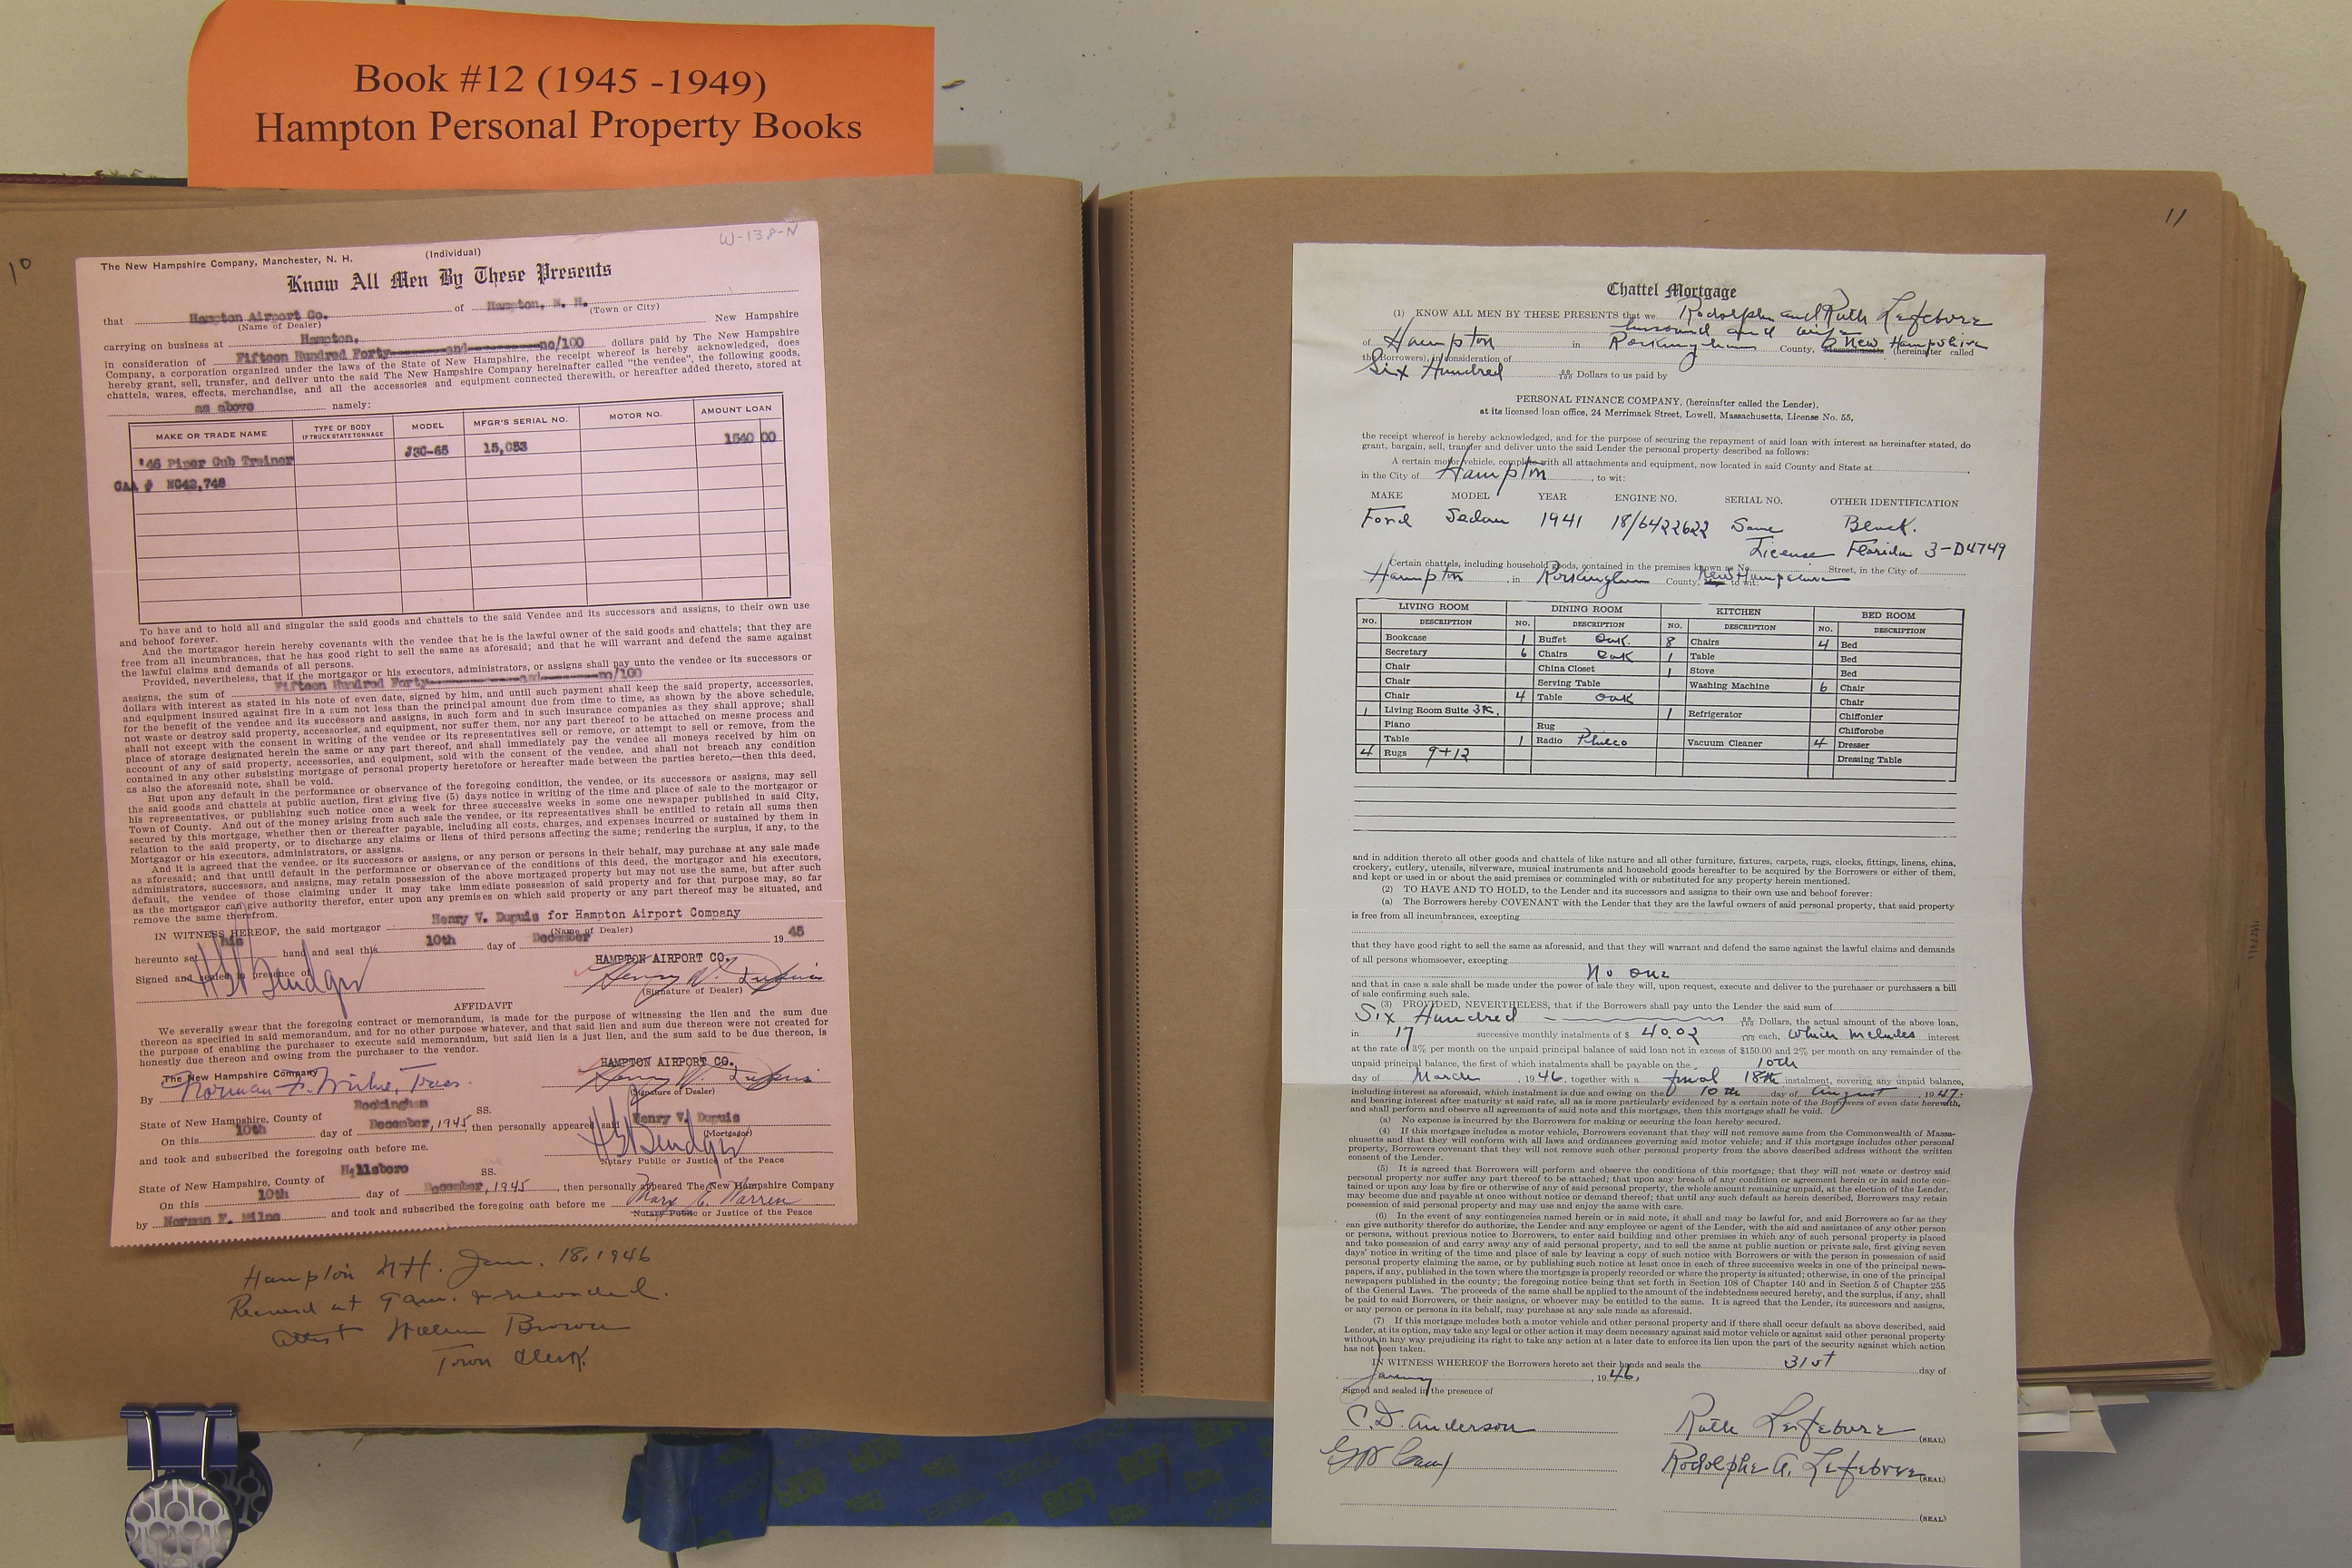 Book #12 (1945 -1949)
Hampton Personal Property Books
10
W-138-N
The New Hampshire Company, Manchester, N. H.
(Individual)
Know All Men By These Presents
that Hampton Airport Co. of Hampton, N. H.
(Name of Dealer) (Town or City)
carrying on business at Hampton, New Hampshire
in consideration of Fifteen Hundred Forty--------and---------no/100 dollars paid by The New Hampshire
Company, a corporation organized under the laws of the State of New Hampshire, the receipt whereof is hereby acknowledged, does
hereby grant, sell, transfer, and deliver unto the said The New Hampshire Company hereinafter called "the vendee", the following goods,
chattels, wares, effects, merchandise, and all the accessories and equipment connected therewith, or hereafter added thereto, stored at
as above namely:
MAKE OR TRADE NAME TYPE OF BODY IF TRUCK STATE TONNAGE MODEL MFGR'S SERIAL NO. MOTOR NO. AMOUNT LOAN
'46 Piper Cub Trainer J3C-65 15,053 1540 00
CAA # NC42,748
To have and to hold all and singular the said goods and chattels to the said Vendee and its successors and assigns, to their own use
and behoof forever.
And the mortgagor herein hereby covenants with the vendee that he is the lawful owner of the said goods and chattels; that they are
free from all incumbrances, that he has good right to sell the same as aforesaid; and that he will warrant and defend the same against
the lawful claims and demands of all persons.
Provided, nevertheless, that if the mortgagor or his executors, administrators, or assigns shall pay unto the vendee or its successors or
assigns, the sum of Fifteen Hundred Forty--------------and---------no/100
dollars with interest as stated in his note of even date, signed by him, and until such payment shall keep the said property, accessories,
and equipment insured against fire in a sum not less than the principal amount due from time to time, as shown by the above schedule,
for the benefit of the vendee and its successors and assigns, in such form and in such insurance companies as they shall approve; shall
not waste or destroy said property, accessories, and equipment, nor suffer them, nor any part thereof to be attached on mesne process and
shall not except with the consent in writing of the vendee or its representatives sell or remove, or attempt to sell or remove, from the
place of storage designated herein the same or any part thereof, and shall immediately pay the vendee all moneys received by him on
account of any of said property, accessories, and equipment, sold with the consent of the vendee, and shall not breach any condition
contained in any other subsisting mortgage of personal property heretofore or hereafter made between the parties hereto,—then this deed,
as also the aforesaid note, shall be void.
But upon any default in the performance or observance of the foregoing condition, the vendee, or its successors or assigns, may sell
the said goods and chattels at public auction, first giving five (5) days notice in writing of the time and place of sale to the mortgagor or
his representatives, or publishing such notice once a week for three successive weeks in some one newspaper published in said City,
Town of County. And out of the money arising from such sale the vendee, or its representatives shall be entitled to retain all sums then
secured by this mortgage, whether then or thereafter payable, including all costs, charges, and expenses incurred or sustained by them in
relation to the said property, or to discharge any claims or liens of third persons affecting the same; rendering the surplus, if any, to the
Mortgagor or his executors, administrators, or assigns.
And it is agreed that the vendee, or its successors or assigns, or any person or persons in their behalf, may purchase at any sale made
as aforesaid; and that until default in the performance or observance of the conditions of this deed, the mortgagor and his executors,
administrators, successors, and assigns, may retain possession of the above mortgaged property but may not use the same, but after such
default, the vendee of those claiming under it may take immediate possession of said property and for that purpose may, so far
as the mortgagor can give authority therefor, enter upon any premises on which said property or any part thereof may be situated, and
remove the same therefrom.
IN WITNESS HEREOF, the said mortgagor Henry V. Dupuis for Hampton Airport Company
(Name of Dealer)
hereunto set his hand and seal this 10th day of December 19 45
Signed and sealed in presence of HAMPTON AIRPORT CO.
Henry V. Dupuis
(Signature of Dealer)
AFFIDAVIT
We severally swear that the foregoing contract or memorandum, is made for the purpose of witnessing the lien and the sum due
thereon as specified in said memorandum, and for no other purpose whatever, and that said lien and sum due thereon were not created for
the purpose of enabling the purchaser to execute said memorandum, but said lien is a just lien, and the sum said to be due thereon, is
honestly due thereon and owing from the purchaser to the vendor.
The New Hampshire Company HAMPTON AIRPORT CO.
By Norman F. Milne, Treas. Henry V. Dupuis
(Signature of Dealer)
State of New Hampshire, County of Rockingham SS.
On this 10th day of December, 1945, then personally appeared said Henry V. Dupuis
(Mortgagor)
and took and subscribed the foregoing oath before me.
Notary Public or Justice of the Peace
State of New Hampshire, County of Hillsboro SS.
On this 10th day of December, 1945, then personally appeared The New Hampshire Company
by Norman F. Milne and took and subscribed the foregoing oath before me Mary C. Warren
Notary Public or Justice of the Peace
Hampton N.H. Jan. 18, 1946
Received at 9 am. & recorded.
Attest William Brown
Town Clerk
11
Chattel Mortgage
(1) KNOW ALL MEN BY THESE PRESENTS that we Rodolphe and Ruth Lefebvre
husband and wife
of Hampton in Rockingham County, Massachusetts New Hampshire (hereinafter called
the Borrowers), in consideration of
Six Hundred 00/100 Dollars to us paid by
PERSONAL FINANCE COMPANY, (hereinafter called the Lender),
at its licensed loan office, 24 Merrimack Street, Lowell, Massachusetts, License No. 55,
the receipt whereof is hereby acknowledged, and for the purpose of securing the repayment of said loan with interest as hereinafter stated, do
grant, bargain, sell, transfer and deliver unto the said Lender the personal property described as follows:
A certain motor vehicle, complete with all attachments and equipment, now located in said County and State at
in the City of Hampton, to wit:
MAKE MODEL YEAR ENGINE NO. SERIAL NO. OTHER IDENTIFICATION
Ford Sedan 1941 18/6422622 Same Black.
License Florida 3-D4749
Certain chattels, including household goods, contained in the premises known as No. Street, in the City of
Hampton, in Rockingham County, New Hampshire to wit:
LIVING ROOM DINING ROOM KITCHEN BED ROOM
NO. DESCRIPTION NO. DESCRIPTION NO. DESCRIPTION NO. DESCRIPTION
Bookcase 1 Buffet Oak. 8 Chairs 4 Bed
Secretary 6 Chairs Oak 1 Table Bed
Chair China Closet 1 Stove Bed
Chair Serving Table Washing Machine 6 Chair
Chair 4 Table Oak Chair
1 Living Room Suite 3 Pc. 1 Refrigerator Chiffonier
Piano Rug Chifforobe
Table 1 Radio Philco Vacuum Cleaner 4 Dresser
4 Rugs 9+12 Dressing Table
and in addition thereto all other goods and chattels of like nature and all other furniture, fixtures, carpets, rugs, clocks, fittings, linens, china,
crockery, cutlery, utensils, silverware, musical instruments and household goods hereafter to be acquired by the Borrowers or either of them,
and kept or used in or about the said premises or commingled with or substituted for any property herein mentioned.
(2) TO HAVE AND TO HOLD, to the Lender and its successors and assigns to their own use and behoof forever:
(a) The Borrowers hereby COVENANT with the Lender that they are the lawful owners of said personal property, that said property
is free from all incumbrances, excepting
that they have good right to sell the same as aforesaid, and that they will warrant and defend the same against the lawful claims and demands
of all persons whomsoever, excepting
No one
and that in case a sale shall be made under the power of sale they will, upon request, execute and deliver to the purchaser or purchasers a bill
of sale confirming such sale.
(3) PROVIDED, NEVERTHELESS, that if the Borrowers shall pay unto the Lender the said sum of
Six Hundred 00/100 Dollars, the actual amount of the above loan,
in 17 successive monthly instalments of $ 40.02 each, which includes interest
at the rate of 3% per month on the unpaid principal balance of said loan not in excess of $150.00 and 2% per month on any remainder of the
unpaid principal balance, the first of which instalments shall be payable on the 10th
day of March, 1946, together with a final 18th instalment, covering any unpaid balance,
including interest as aforesaid, which instalment is due and owing on the 10th day of August, 1947:
and bearing interest after maturity at said rate, all as is more particularly evidenced by a certain note of the Borrowers of even date herewith,
and shall perform and observe all agreements of said note and this mortgage, then this mortgage shall be void.
(a) No expense is incurred by the Borrowers for making or securing the loan hereby secured.
(4) If this mortgage includes a motor vehicle, Borrowers covenant that they will not remove same from the Commonwealth of Massa-
chusetts and that they will conform with all laws and ordinances governing said motor vehicle; and if this mortgage includes other personal
property, Borrowers covenant that they will not remove such other personal property from the above described address without the written
consent of the Lender.
(5) It is agreed that Borrowers will perform and observe the conditions of this mortgage; that they will not waste or destroy said
personal property nor suffer any part thereof to be attached; that upon any breach of any condition or agreement herein or in said note con-
tained or upon any loss by fire or otherwise of any of said personal property, the whole amount remaining unpaid, at the election of the Lender,
may become due and payable at once without notice or demand thereof; that until any such default as herein described, Borrowers may retain
possession of said personal property and may use and enjoy the same with care.
(6) In the event of any contingencies named herein or in said note, it shall and may be lawful for, and said Borrowers so far as they
can give authority therefor do authorize, the Lender and any employee or agent of the Lender, with the aid and assistance of any other person
or persons, without previous notice to Borrowers, to enter said building and other premises in which any of such personal property is placed
and take possession of and carry away any of said personal property, and to sell the same at public auction or private sale, first giving seven
days' notice in writing of the time and place of sale by leaving a copy of such notice with Borrowers or with the person in possession of said
personal property claiming the same, or by publishing such notice at least once in each of three successive weeks in one of the principal news-
papers, if any, published in the town where the mortgage is properly recorded or where the property is situated; otherwise, in one of the principal
newspapers published in the county; the foregoing notice being that set forth in Section 108 of Chapter 140 and in Section 5 of Chapter 255
of the General Laws. The proceeds of the same shall be applied to the amount of the indebtedness secured hereby, and the surplus, if any, shall
be paid to said Borrowers, or their assigns, or whoever may be entitled to the same. It is agreed that the Lender, its successors and assigns,
or any person or persons in its behalf, may purchase at any sale made as aforesaid.
(7) If this mortgage includes both a motor vehicle and other personal property and if there shall occur default as above described, said
Lender, at its option, may take any legal or other action it may deem necessary against said motor vehicle or against said other personal property
without in any way prejudicing its right to take any action at a later date to enforce its lien upon the part of the security against which action
has not been taken.
IN WITNESS WHEREOF the Borrowers hereto set their hands and seals the 31st day of
January, 1946.
Signed and sealed in the presence of
C. D. Anderson Ruth Lefebvre (SEAL)
Rodolphe A. Lefebvre (SEAL)
(SEAL)